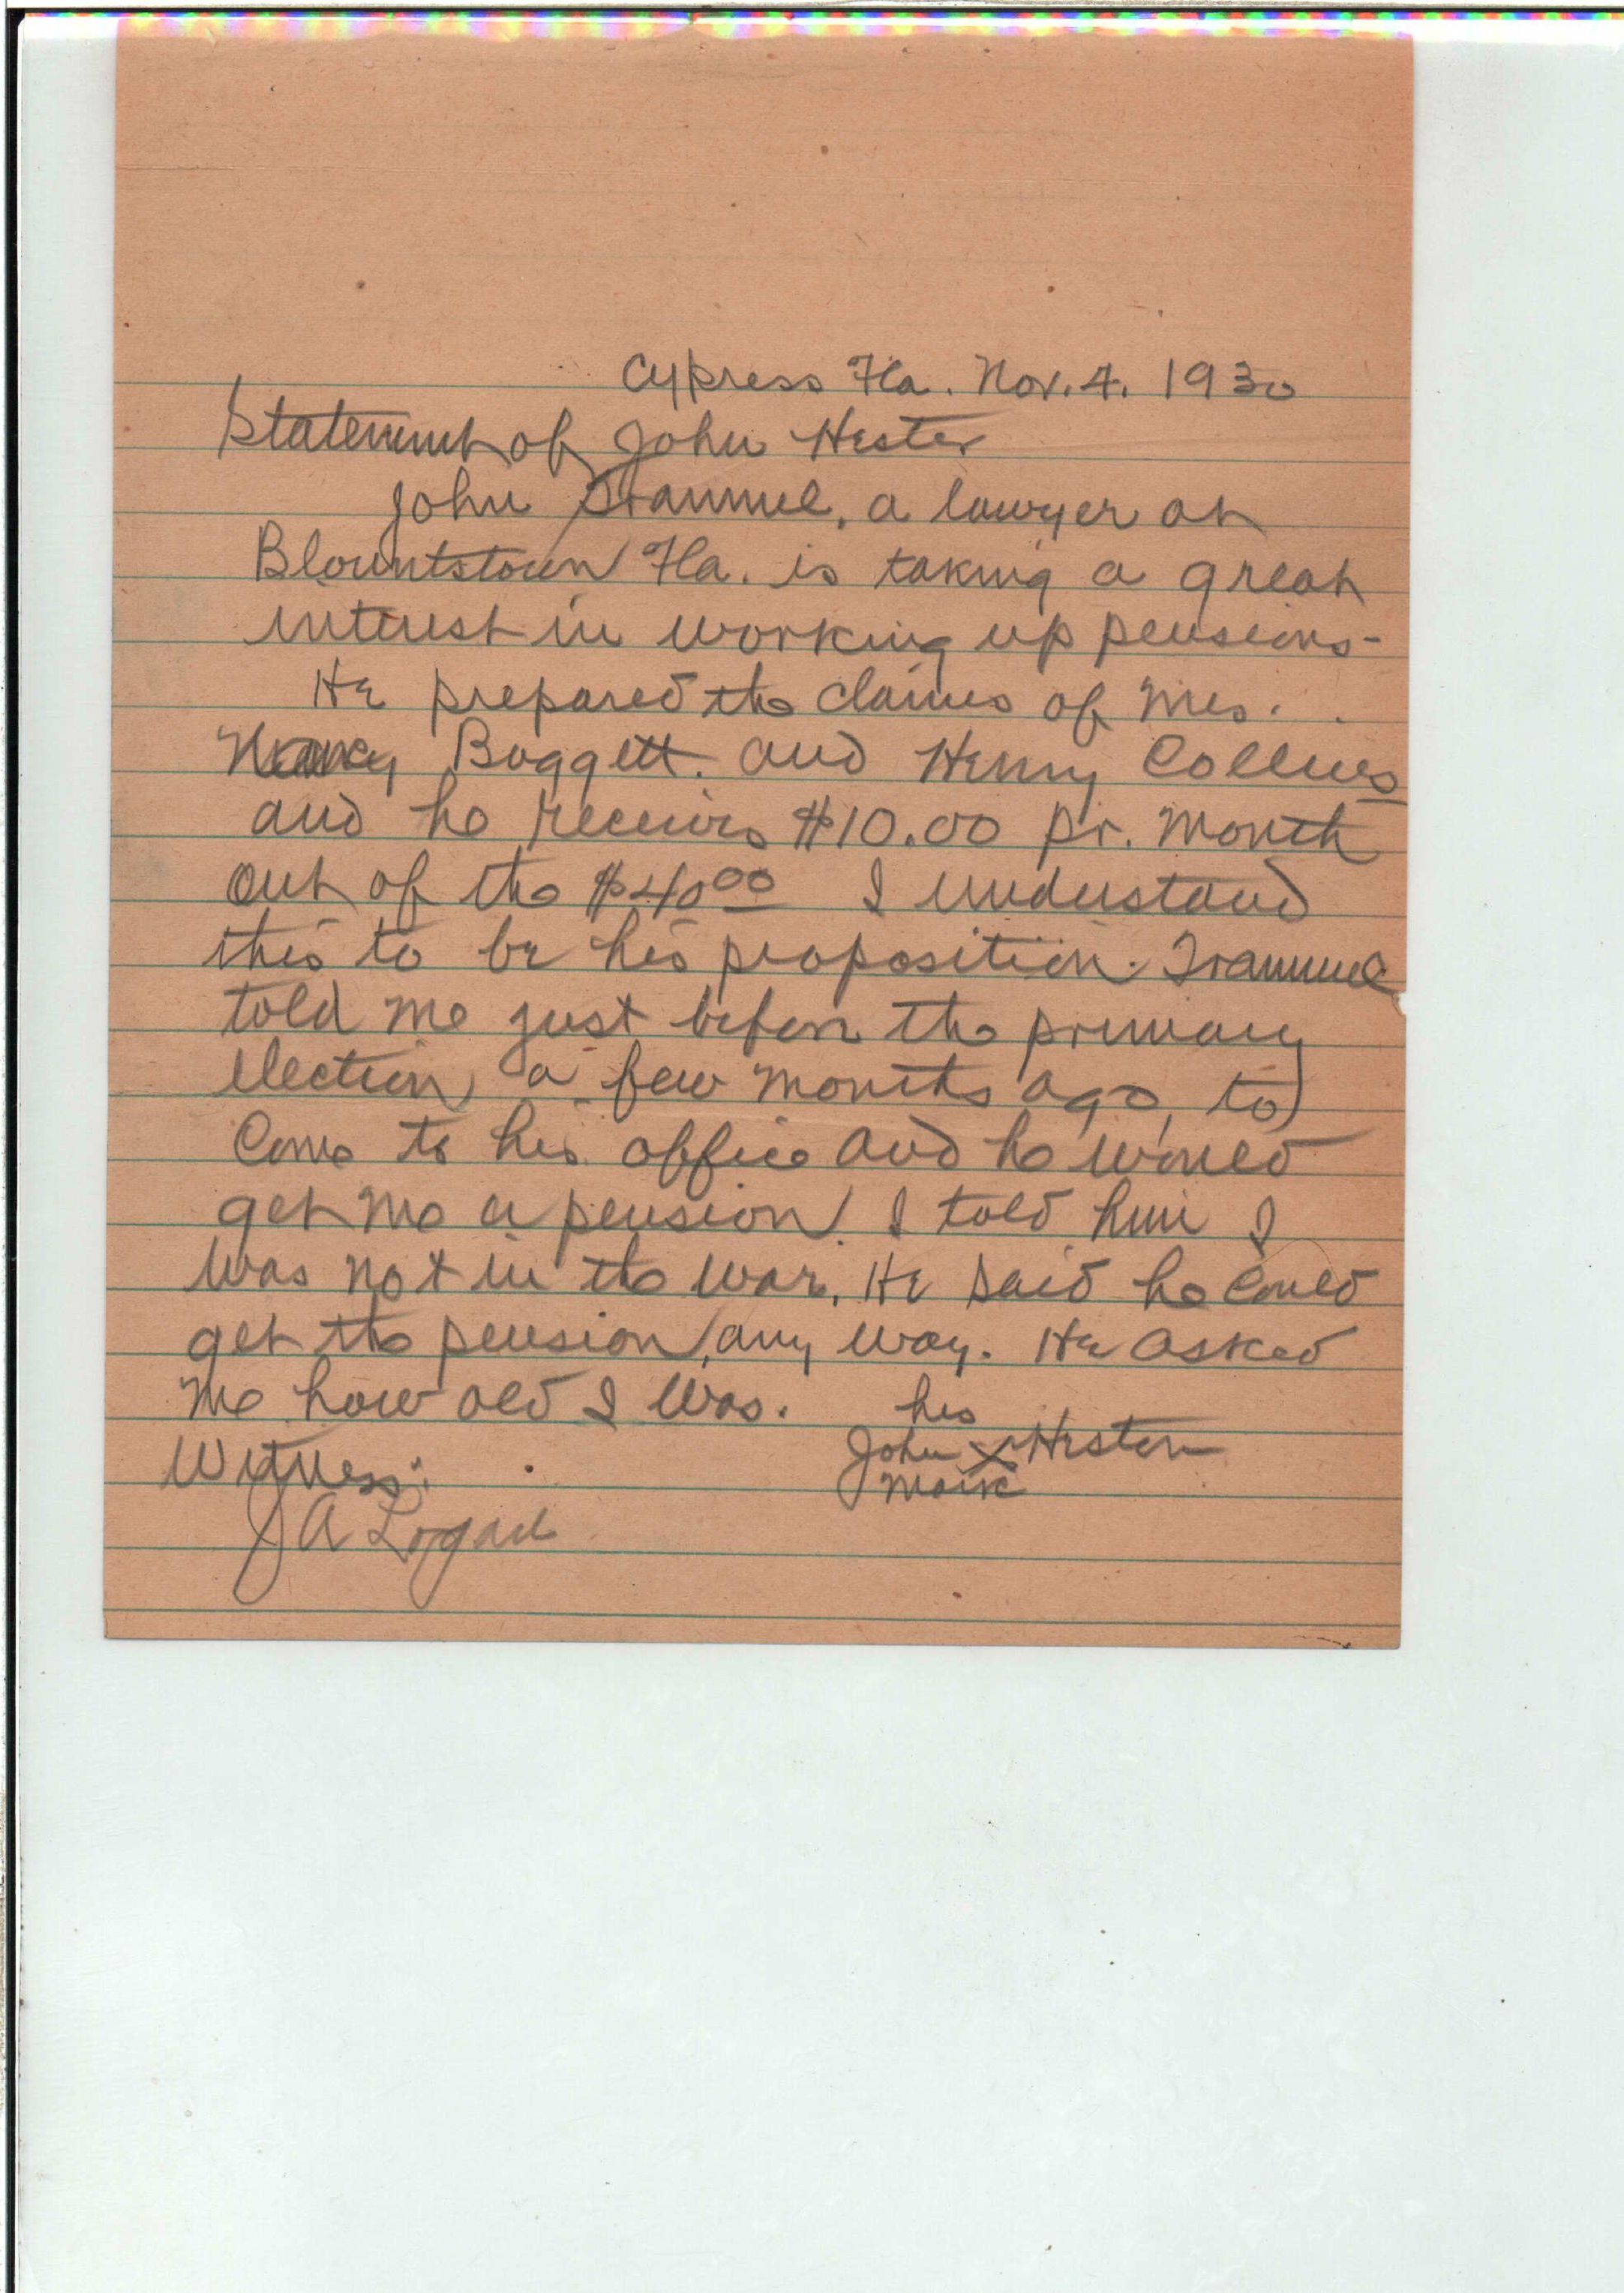 Cypress Fla. Nov. 4. 1930
Statement of John Hester
John Trammel, a lawyer at
Blountstown Fla. is taking a great
interest in working up pensions-
He prepared the claims of Mrs.
Baggett. and Henry Collins
and he receives $10.00 pr. month
out of the $40.00 I understand
this to be his proposition. Trammel
told me just before the primary
election a few months ago, to
come to his office and he would
get me a pension. I told him I
was not in the war. He said he could
get the pension, any way. He asked
me how old I was.
his
John X Hester
mark
Witness:
J A Logan